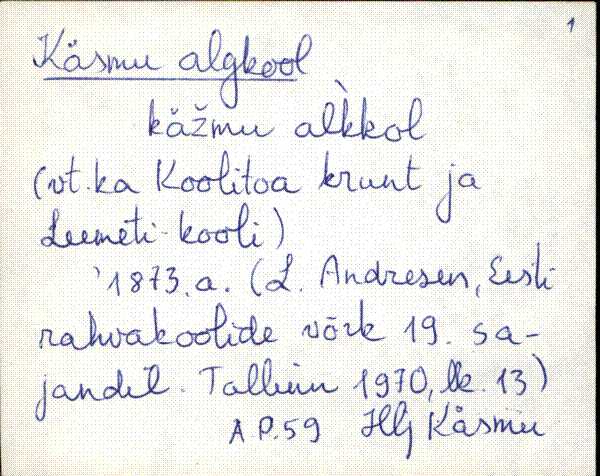 1
Käsmu algkool
kăžmu al̀kkol
(vt. ka Koolitoa krunt ja
Leemeti-kooli)
1873. a. (L. Andresen, Eesti
rahvakoolide võrk 19. sa-
jandil. Tallinn 1970, lk. 13)
A.P. 59 Hlj Käsmu